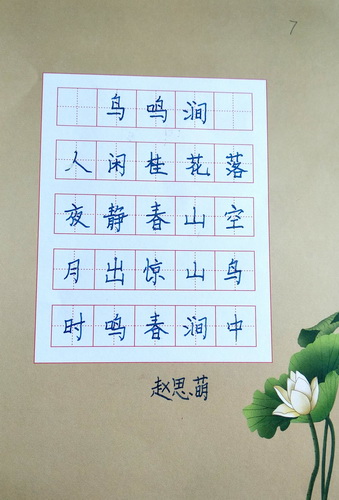 7
鸟鸣涧
人闲桂花落
夜静春山空
月出惊山鸟
时鸣春涧中
赵思萌